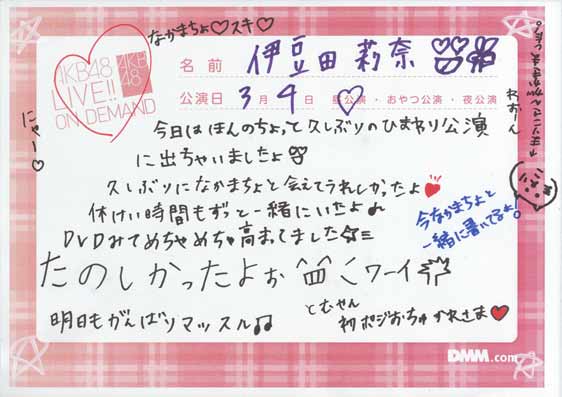 なかまちょ♡スキ♡
AKB48
LIVE!!
ON DEMAND
AKB
48
名前 伊豆田 莉奈
公演日 3月4日 昼公演・おやつ公演・夜公演
にゃー♡
わおーん
今日はほんのちょっと久しぶりのひまわり公演
に出ちゃいましたよ
久しぶりになかまちょと会えてうれしかったよ
休けい時間もずっと一緒にいたよ♪
DVDみてめちゃめちゃ高まってました☆
今なかまちょと
一緒に書いてるよ!
たのしかったよぉ くワーイ
明日もがんばりマッスル♫
とむやん
初ポジおちゅかれさま♥
DMM.com